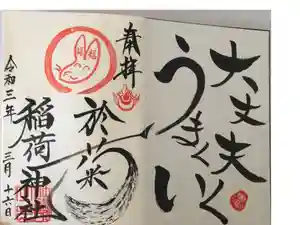 大丈夫
うまくいく
奉拝
於菊
稲荷神社
令和三年
三月十六日